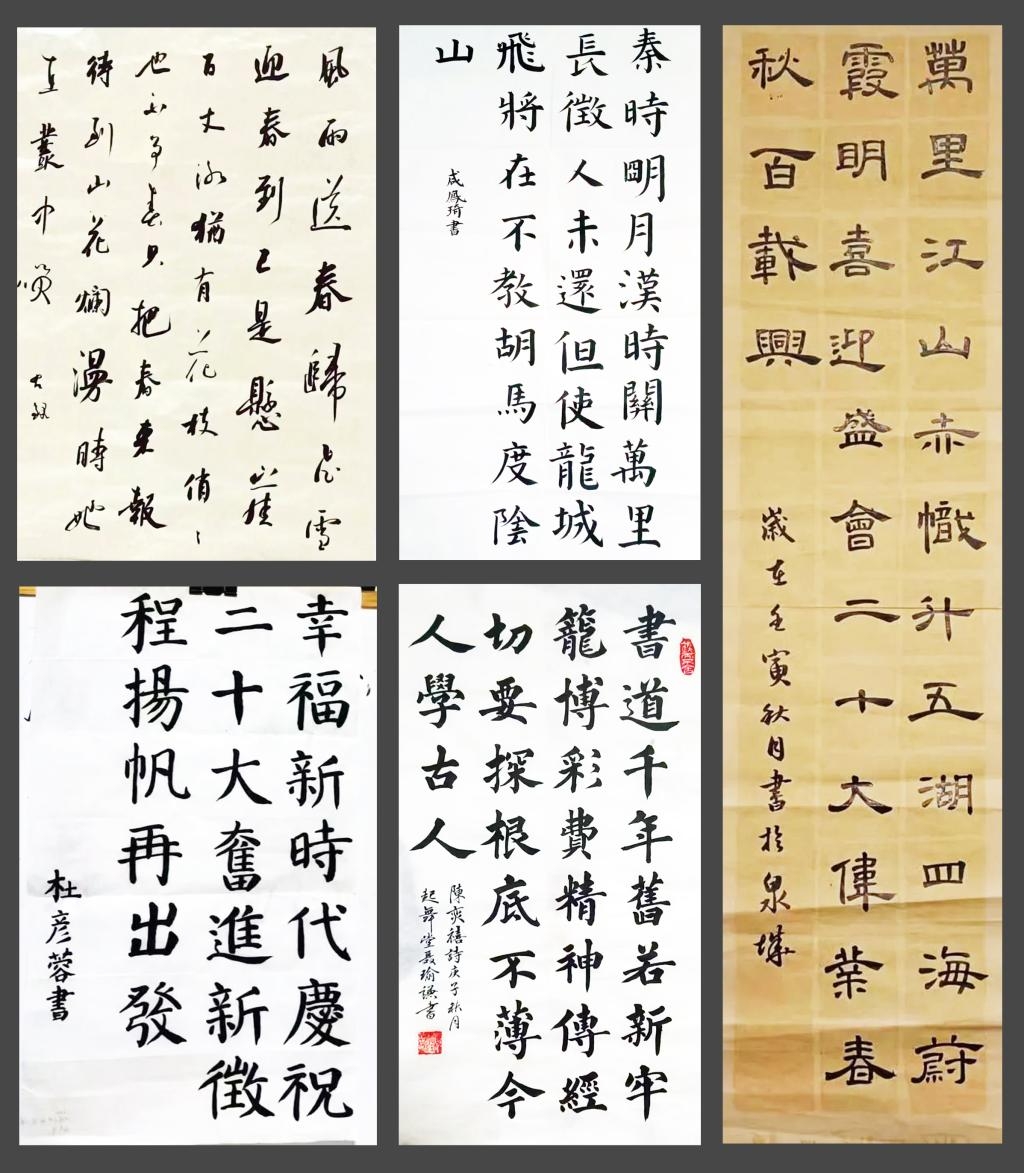 風雨送春歸飛雪
迎春到已是懸崖
百丈冰猶有花枝俏〻
也不爭春只把春來報
待到山花爛漫時她
在叢中笑
秦時明月漢時關萬里
長徵人未還但使龍城
飛將在不教胡馬度陰
山
成鳳琦書
萬里江山赤幟升五湖四海蔚
霞明喜迎盛會二十大偉業春
秋百載興
歲在壬寅秋月書於泉城
幸福新時代慶祝
二十大奮進新徵
程揚帆再出發
杜彥蓉書
書道千年舊若新牢
籠博彩費精神傳經
切要探根底不薄今
人學古人
陳奕禧詩庚子秋月
起舞堂聶瑜書